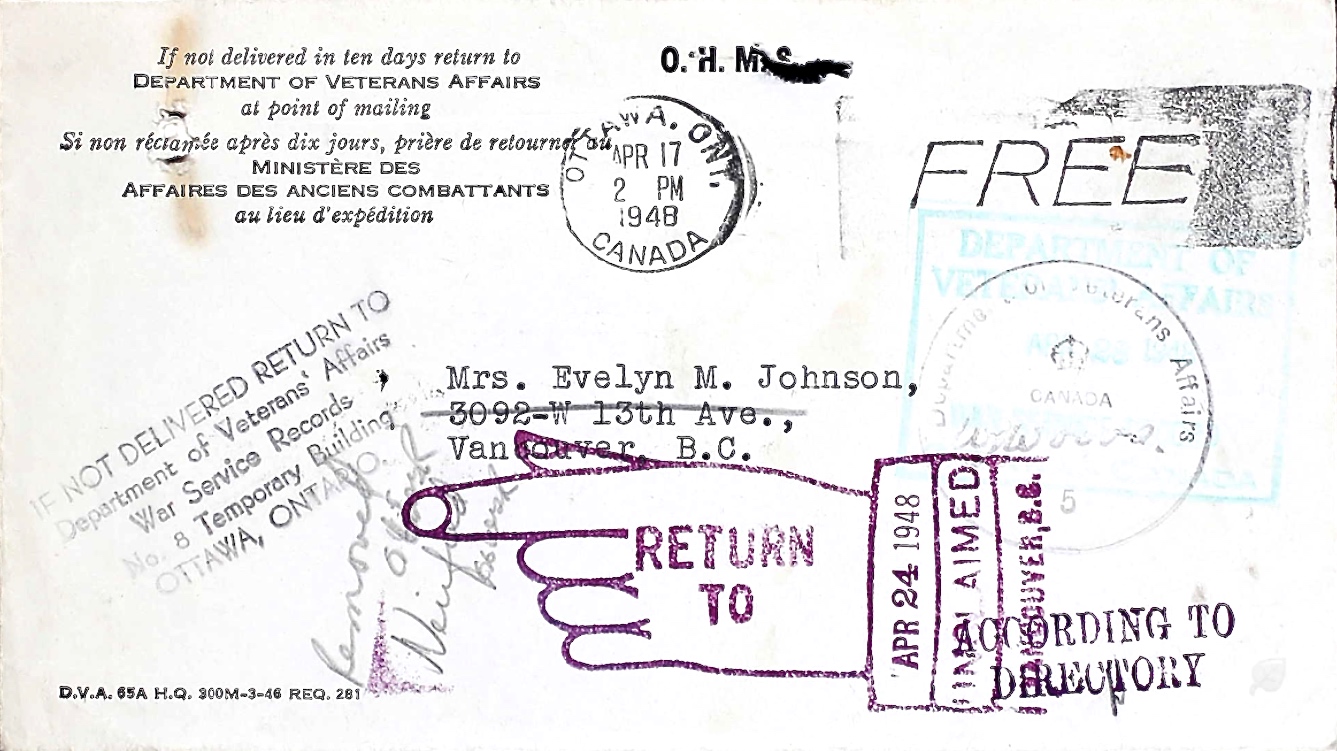 If not delivered in ten days return to
DEPARTMENT OF VETERANS AFFAIRS
at point of mailing
Si non réclamée après dix jours, prière de retourner au
MINISTÈRE DES
AFFAIRES DES ANCIENS COMBATTANTS
au lieu d'expédition
O. H. M. S.
OTTAWA, ONT.
APR 17
2 PM
1948
CANADA
FREE
DEPARTMENT OF
VETERANS AFFAIRS
Department of Veterans Affairs
CANADA
5
IF NOT DELIVERED RETURN TO
Department of Veterans' Affairs
War Service Records
No. 8 Temporary Building
OTTAWA, ONTARIO.
Mrs. Evelyn M. Johnson,
3092-W 13th Ave.,
Vancouver, B.C.
removed
RETURN
TO
APR 24 1948
UNCLAIMED
VANCOUVER, B.C.
ACCORDING TO
DIRECTORY
D.V.A. 65A H.Q. 300M-3-46 REQ. 281